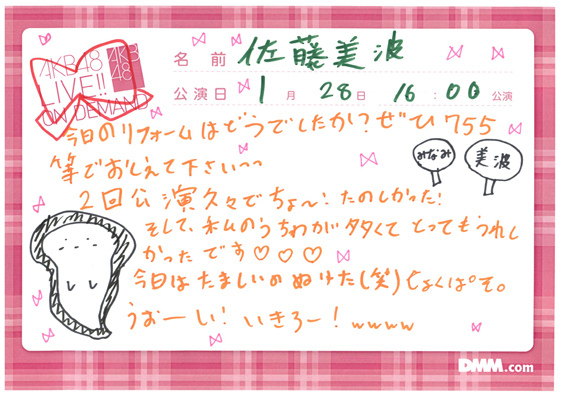 AKB48
LIVE!!
ON DEMAND
AKB
48
名前 佐藤美波
公演日 1月 28日 16:00 公演
今日のリフォームはどうでしたか!?ぜひ755
等でおしえて下さいっっ
みなみ
美波
2回公演久々でちょ〜!たのしかった!
そして、私のうちわが多くてとってもうれし
かったです♡♡♡
今日はたましいのぬけた(笑)
うおーし!いきろー!wwww
DMM.com